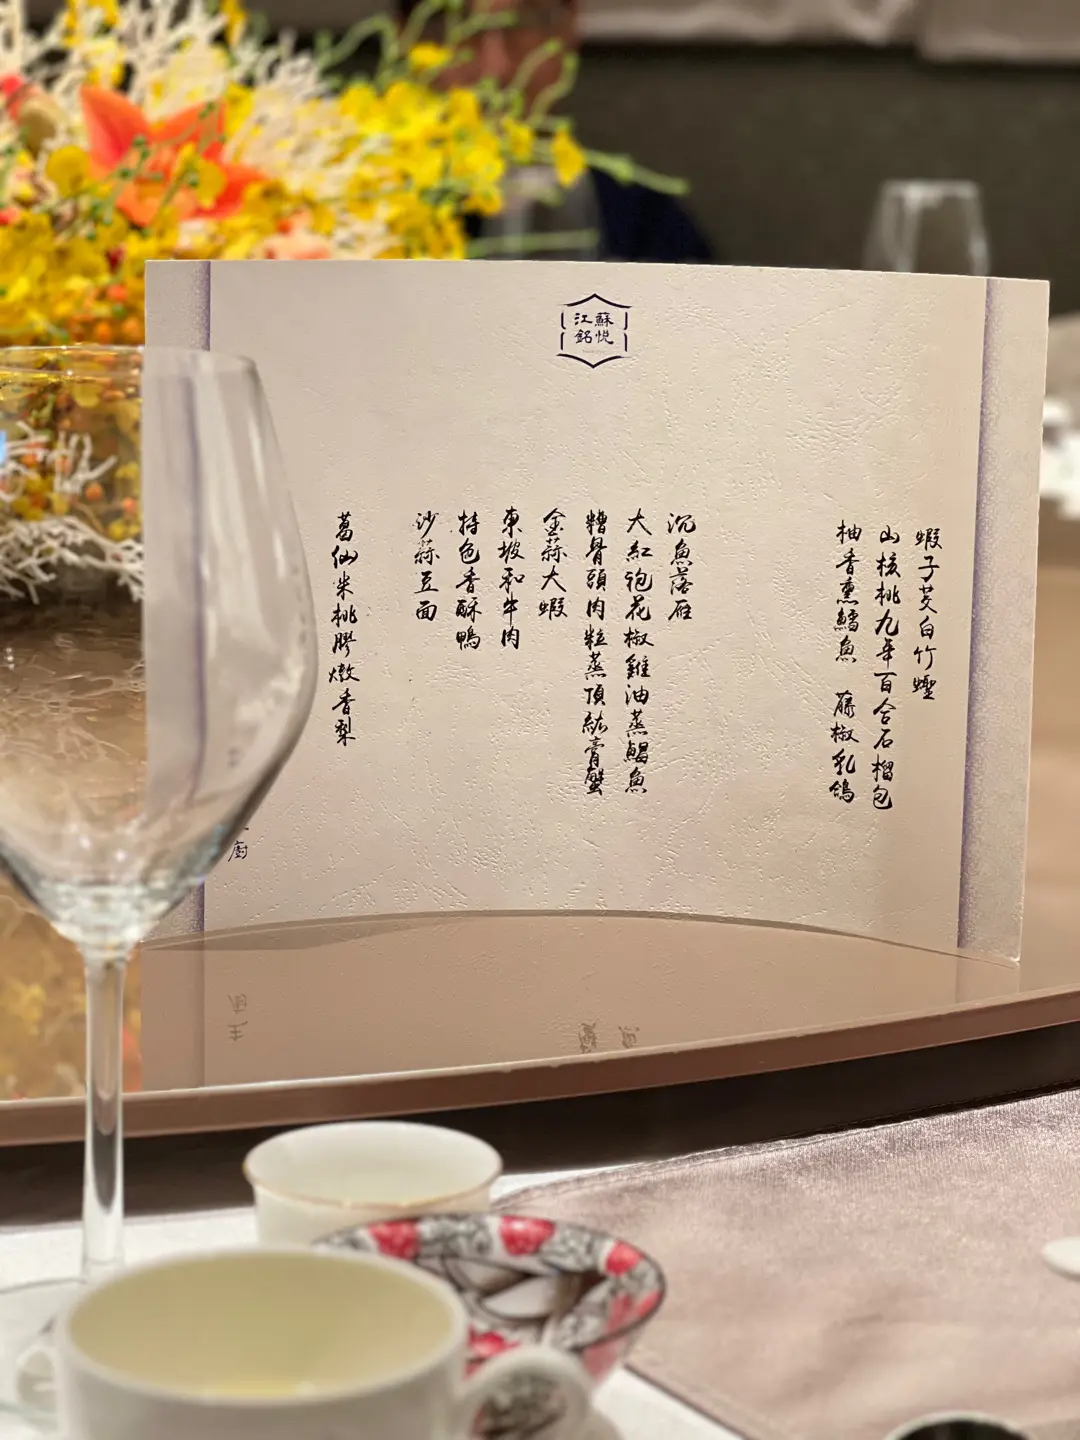 江蘇
銘悅
蝦子茭白竹蟶
山核桃九年百合石榴包
柚香熏鱈魚 藤椒乳鴿
沉魚落雁
大紅袍花椒雞油蒸魚
糟骨頭肉粒蒸頂紅膏蟹
金蒜大蝦
東坡和牛肉
特色香酥鴨
沙蒜豆面
葛仙米桃膠燉香梨
廚